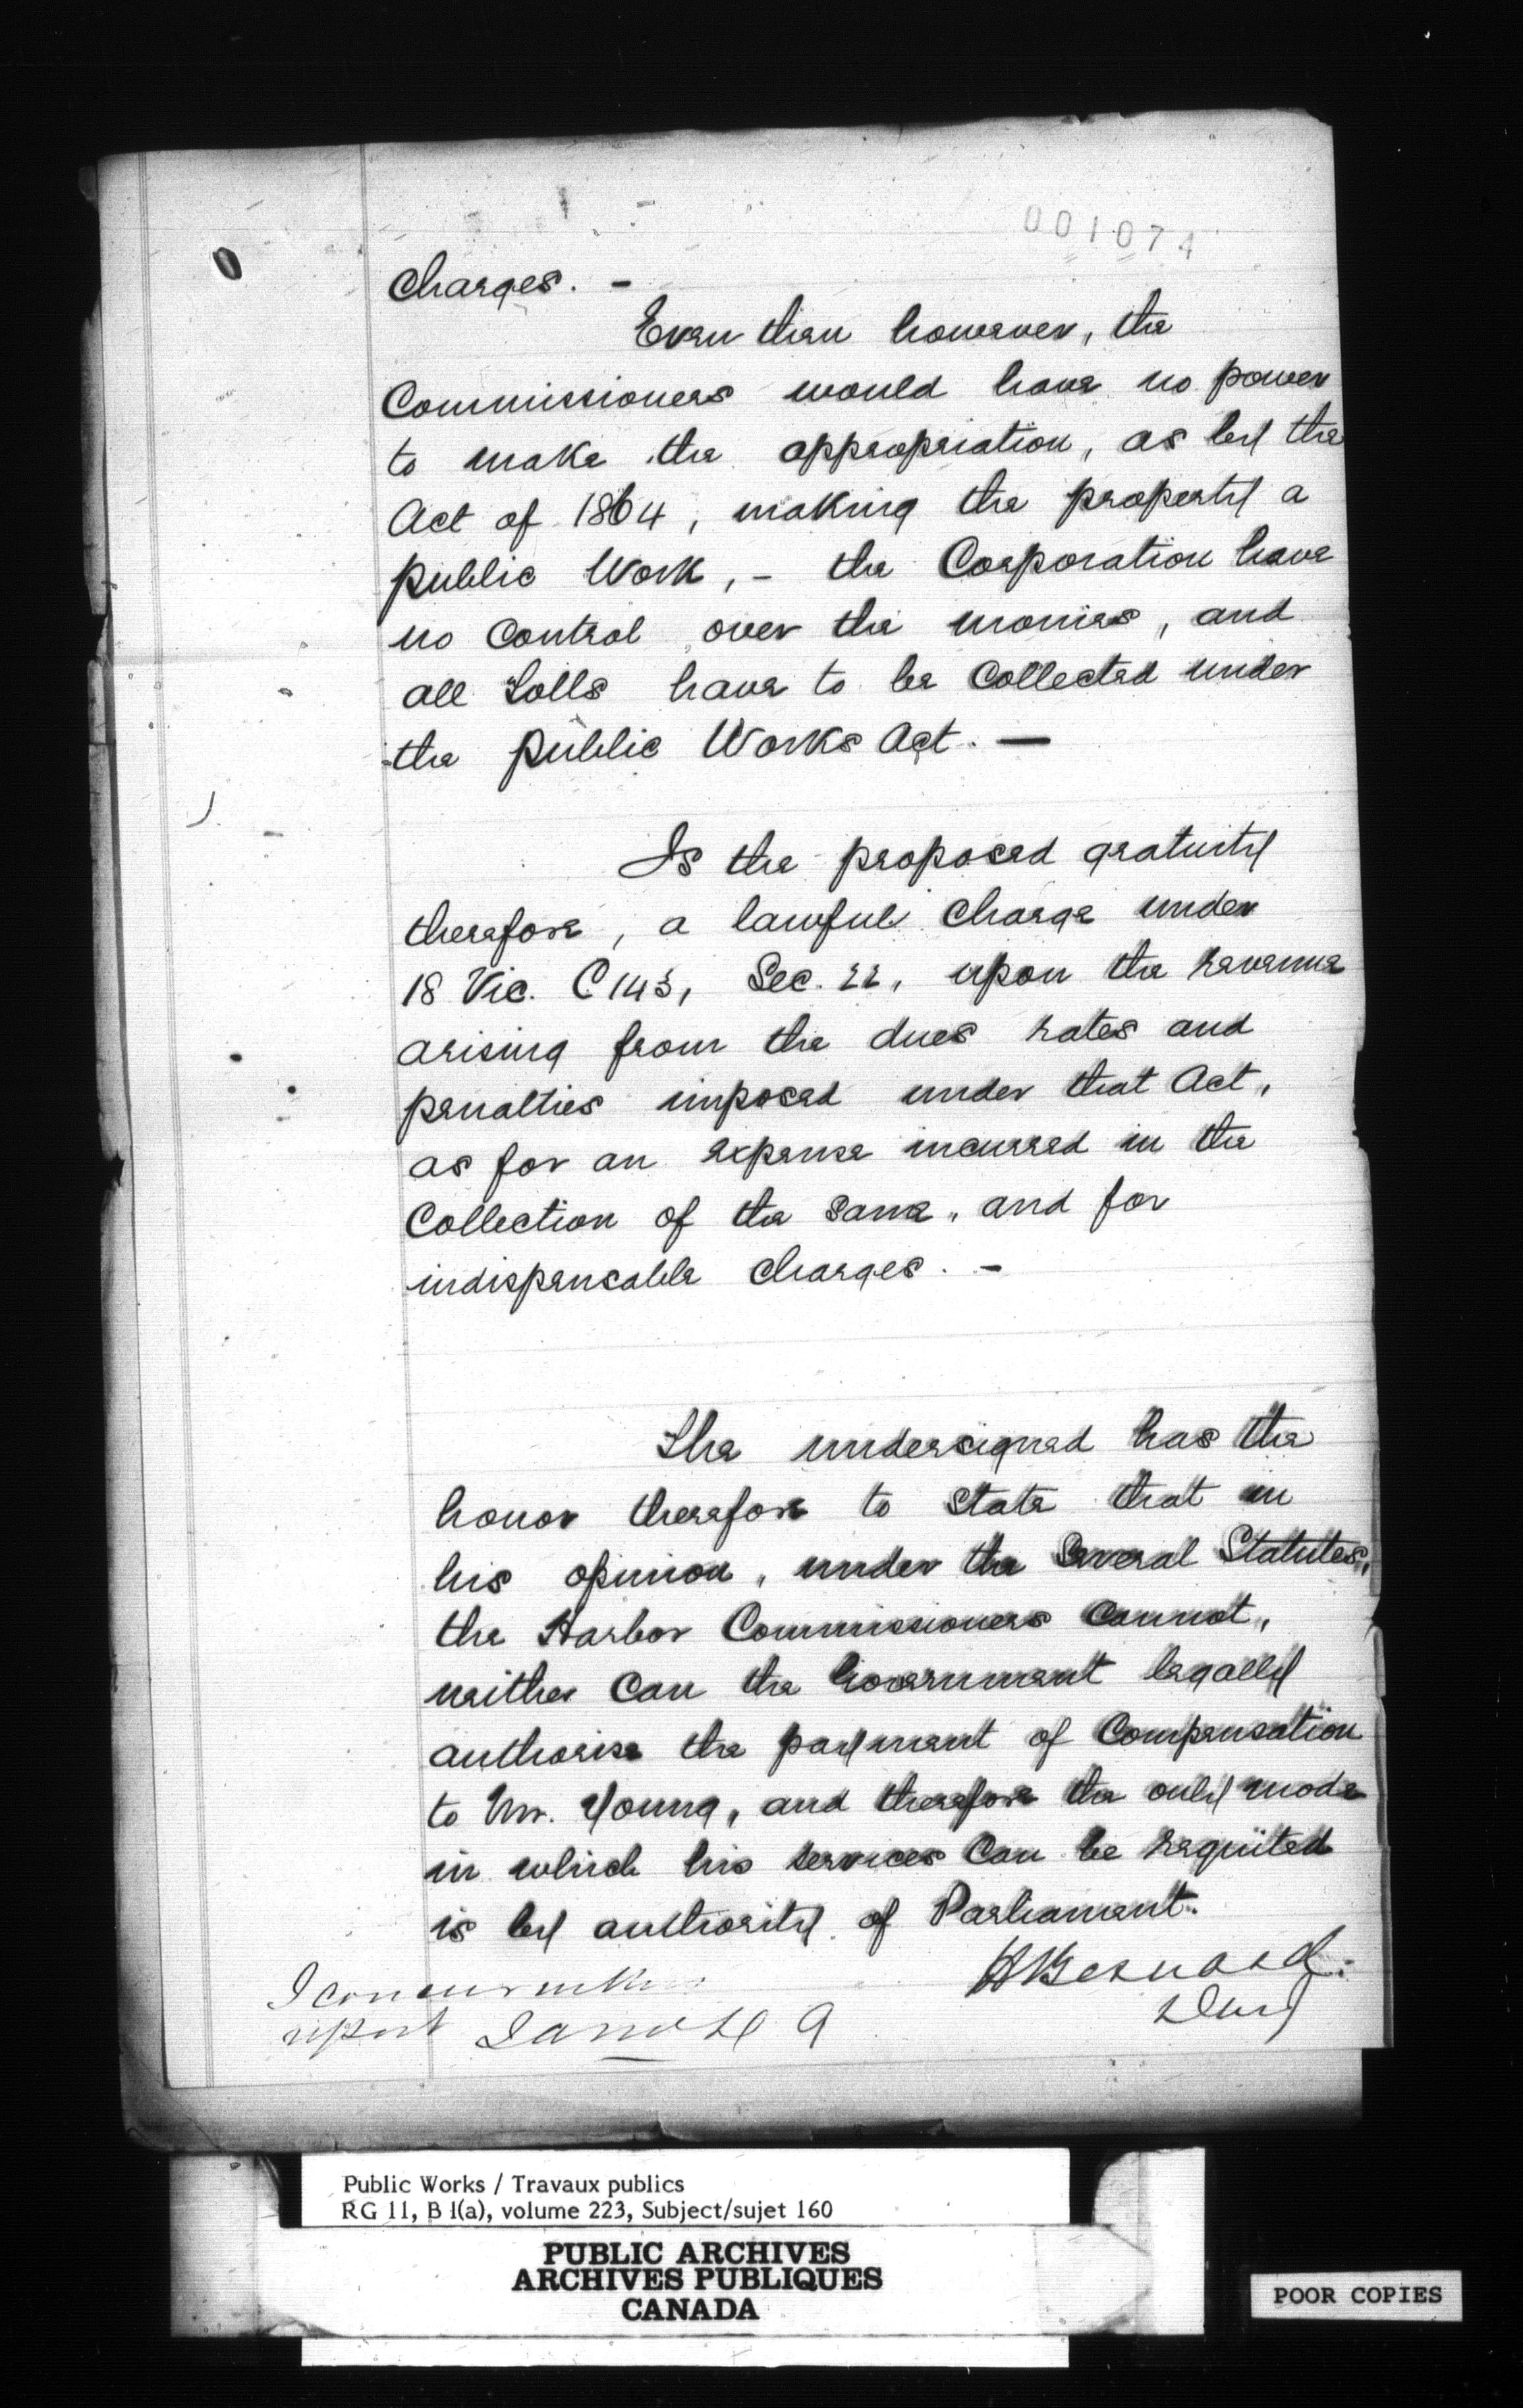 001074
Charges. -
Even then however, the
Commissioners would have no power
to make the appropriation, as by the
Act of 1864, making the property a
public Work, - the Corporation have
no Control over the monies, and
all Tolls have to be Collected under
the public Works Act. —
Is the proposed gratuity
therefore, a lawful Charge under
18 Vic. C 143, Sec. 22, upon the revenue
arising from the dues rates and
penalties imposed under that Act,
as for an expense incurred in the
Collection of the same, and for
indispensable Charges. -
The undersigned has the
honor therefore to State that in
his opinion, under the Several Statutes,
the Harbor Commissioners Cannot,
neither Can the Government legally
authorise the payment of Compensation
to Mr. Young, and therefore the only mode
in which his services Can be requited
is by authority of Parliament.
H Bernard.
I concur in this
report
Public Works / Travaux publics
RG 11, B 1(a), volume 223, Subject/sujet 160
PUBLIC ARCHIVES
ARCHIVES PUBLIQUES
CANADA
POOR COPIES